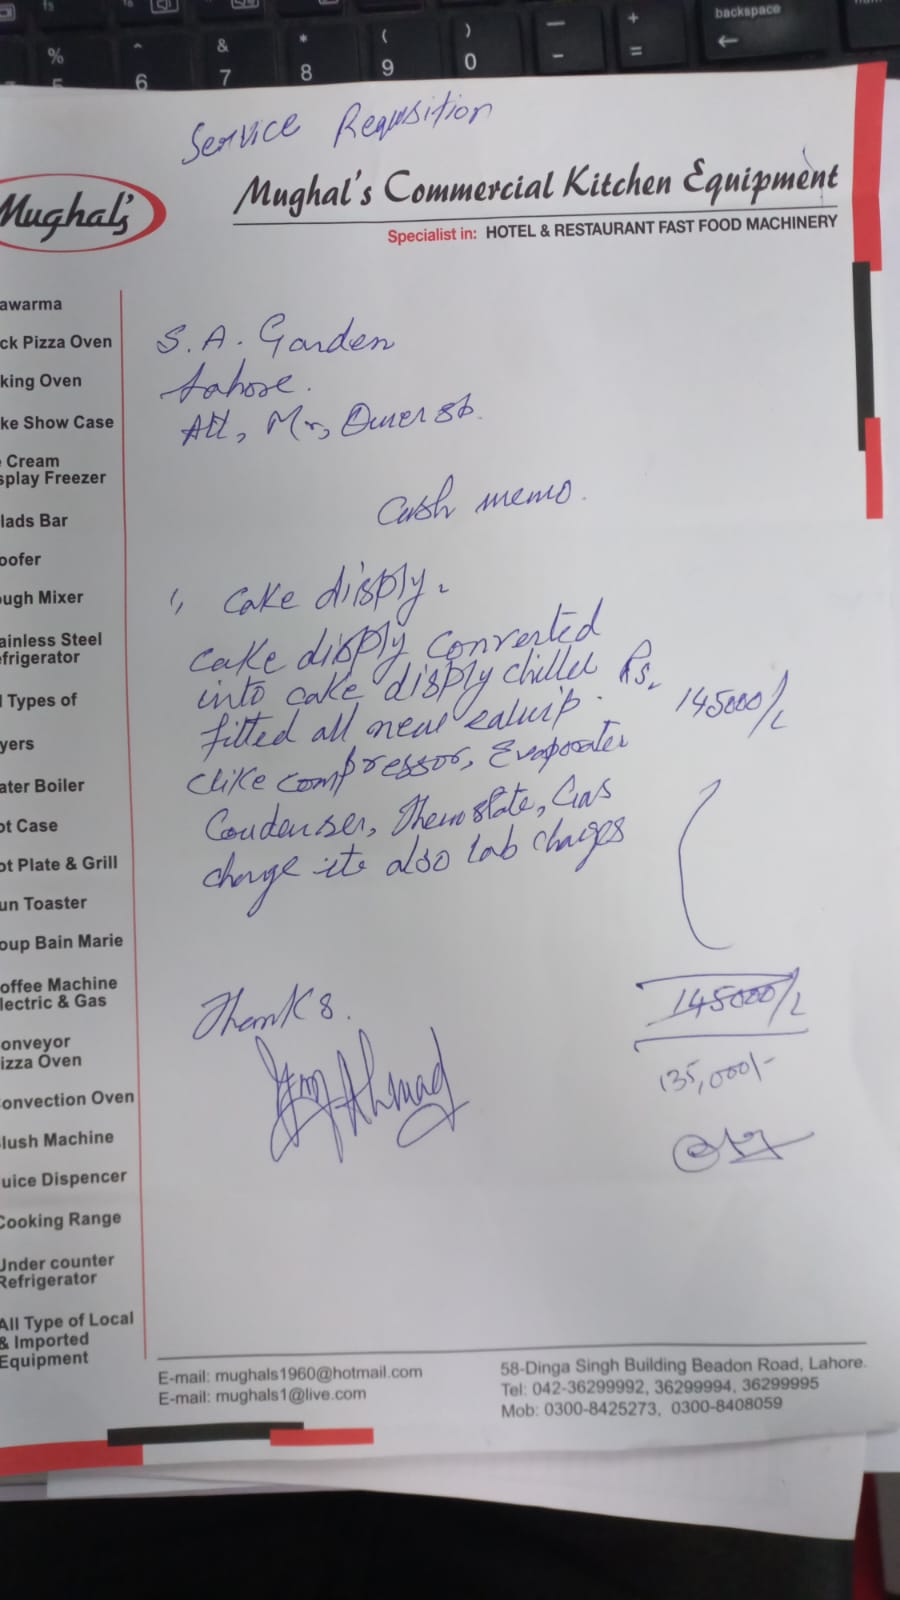 f5
f8
backspace
%
^
&
*
(
)
—
+
5
6
7
8
9
0
-
=
←
Service Requisition
Mughal's
Mughal's Commercial Kitchen Equipment
Specialist in: HOTEL & RESTAURANT FAST FOOD MACHINERY
awarma
ck Pizza Oven
king Oven
ke Show Case
Cream
splay Freezer
lads Bar
oofer
ugh Mixer
ainless Steel
efrigerator
l Types of
yers
ater Boiler
ot Case
ot Plate & Grill
un Toaster
oup Bain Marie
offee Machine
lectric & Gas
onveyor
izza Oven
onvection Oven
lush Machine
uice Dispencer
Cooking Range
Under counter
Refrigerator
All Type of Local
& Imported
Equipment
S. A. Garden
Lahore.
Att, Mr, Omer sb.
Cash memo.
1, Cake disply.
Cake disply converted
into cake disply chiller Rs. 145000/-
fitted all new
(like compressor, Evaporater
Condenser, Themostate, Gas
charge etc also lab charges
Thanks.
145000/-
135,000/-
Ahmad
E-mail: mughals1960@hotmail.com
E-mail: mughals1@live.com
58-Dinga Singh Building Beadon Road, Lahore.
Tel: 042-36299992, 36299994, 36299995
Mob: 0300-8425273, 0300-8408059